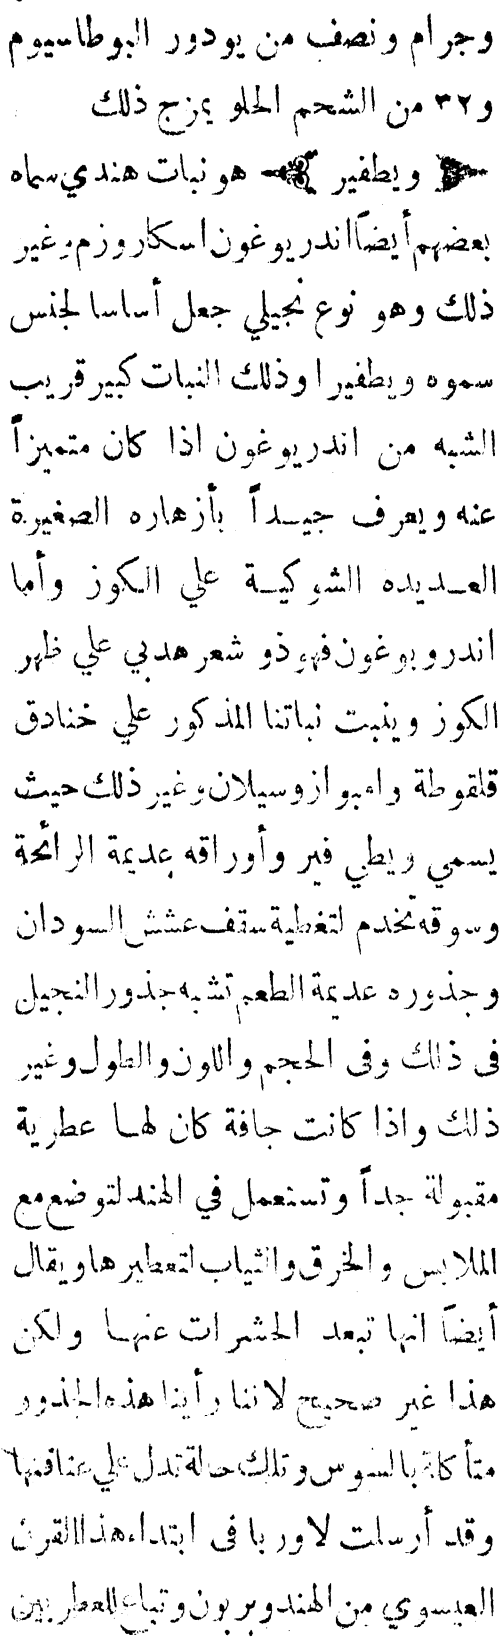 وجرام ونصف من يودور البوطاسيوم
و٣٢ من الشحم الحلو يمزج ذلك
﴿ ويطفير ﴾ هو نبات هندي سماه
بعضهم أيضاً اندريوغون اسكاروزم وغير
ذلك وهو نوع نجيلي جعل أساسا لجنس
سموه ويطفيرا وذلك النبات كبير قريب
الشبه من اندريوغون اذا كان متميزاً
عنه ويعرف جيداً بأزهاره الصغيرة
العديده الشوكية علي الكوز وأما
اندروبوغون فهو ذو شعر هدبي علي ظهر
الكوز وينبت نباتنا المذكور علي خنادق
قلقوطة وامبواز وسيلان وغير ذلك حيث
يسمي ويطي فير وأوراقه عديمة الرائحة
وسوقه تخدم لتغطية سقف عشش السودان
وجذوره عديمة الطعم تشبه جذور النجيل
فى ذلك وفى الحجم واللون والطول وغير
ذلك واذا كانت جافة كان لها عطرية
مقبولة جداً وتستعمل في الهند لتوضع مع
الملابس والخرق والثياب لتعطيرها ويقال
أيضاً انها تبعد الحشرات عنها ولكن
هذا غير صحيح لاننا رأينا هذه الجذور
متأكلة بالسوس وتلك حالة تدل علي عتاقتها
وقد أرسلت لاوربا فى ابتداء هذا القرن
العيسوي من الهند وبربون وتباع للعطريين